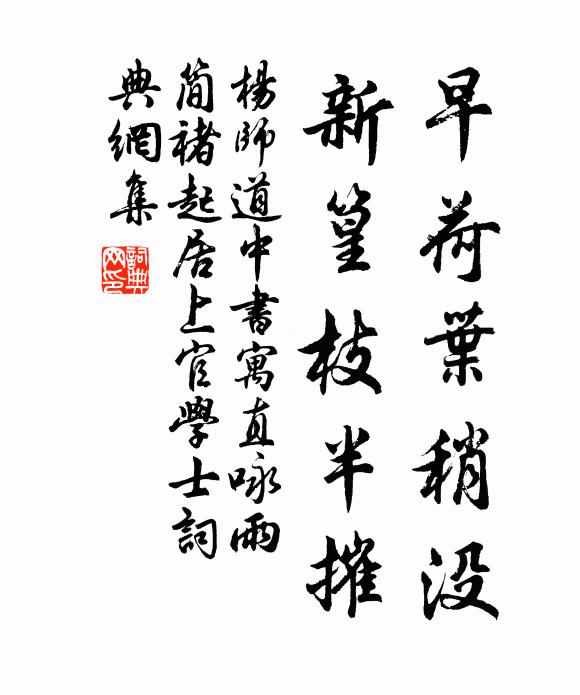 早荷葉稍没
新篁枝半摧
楊師道中書寓直咏雨
简褚起居上官學士詞
典網集
詞典网印